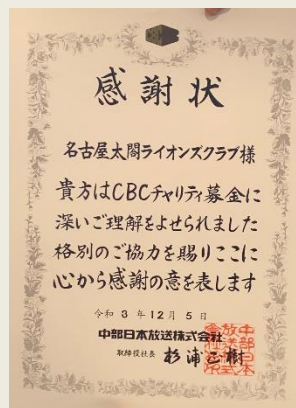 感謝状
名古屋太閤ライオンズクラブ様
貴方はCBCチャリティ募金に
深いご理解をよせられました
格別のご協力を賜りここに
心から感謝の意を表します
令和3年12月5日
中部日本放送株式会社
取締役社長 杉浦正樹